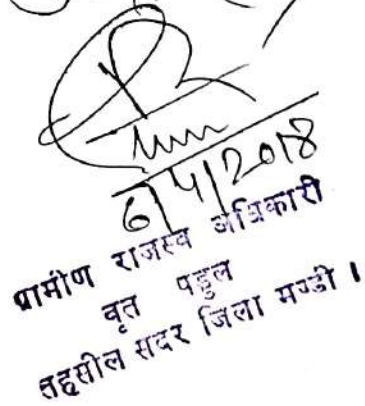 6/4/2018
ग्रामीण राजस्व अधिकारी
वृत पड्डल
तहसील सदर जिला मण्डी ।